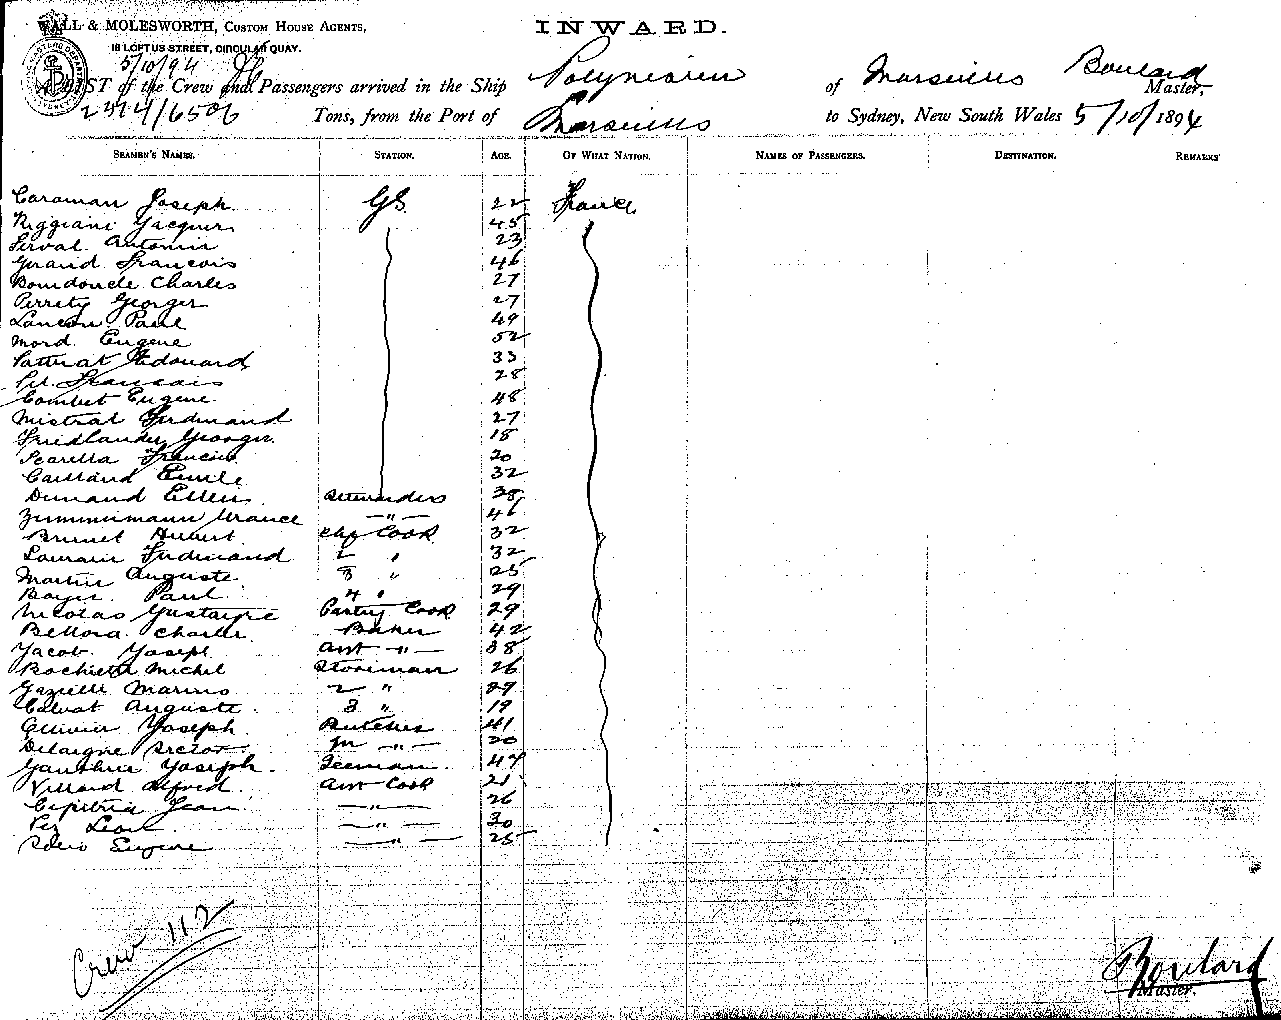 WALL & MOLESWORTH, CUSTOM HOUSE AGENTS,
INWARD.
18 LOFTUS STREET, CIRCULAR QUAY.
5/10/94
LIST of the Crew and Passengers arrived in the Ship Polynesien of Marseilles Boulard Master,
2414/6506 Tons, from the Port of Marseilles to Sydney, New South Wales 5/10/1894
SEAMEN'S NAMES. STATION. AGE. OF WHAT NATION. NAMES OF PASSENGERS. DESTINATION. REMARKS
Caraman Joseph GS. 22 France
Riggiani Jacques 45
Serval Antonin 23
Guard Francois 46
Bourdoncle Charles 27
Perrety Georges 27
Lancon Paul 49
Mord Eugene 52
Patturat Edouard 33
Francois 28
Combet Eugene 48
Mistral Ferdinand 27
Friedlander Georges 18
Scarella Francois 20
Caillaud Emile 32
Dumand Ellen Stewardess 38
Zummermann Urance -"- 46
Brunet Hubert Chf Cook 32
Laurain Ferdinand 2 " 32
Martin Auguste 3 " 25
Boyer Paul 4 " 29
Nicolas Gustave Pastry Cook 29
Bellora Charles Baker 42
Jacob Joseph Asst -"- 38
Michel Storeman 26
Marius 2 " 29
Calvat Auguste 3 " 19
Ollivier Joseph Butcher 41
Delaigne -"- 20
Gauthier Joseph Iceman 47
Villard Alfred Asst Cook 21
Jean -"- 26
Pez Leon -"- 30
Eugene -"- 25
Crew 112
Boulard
Master.